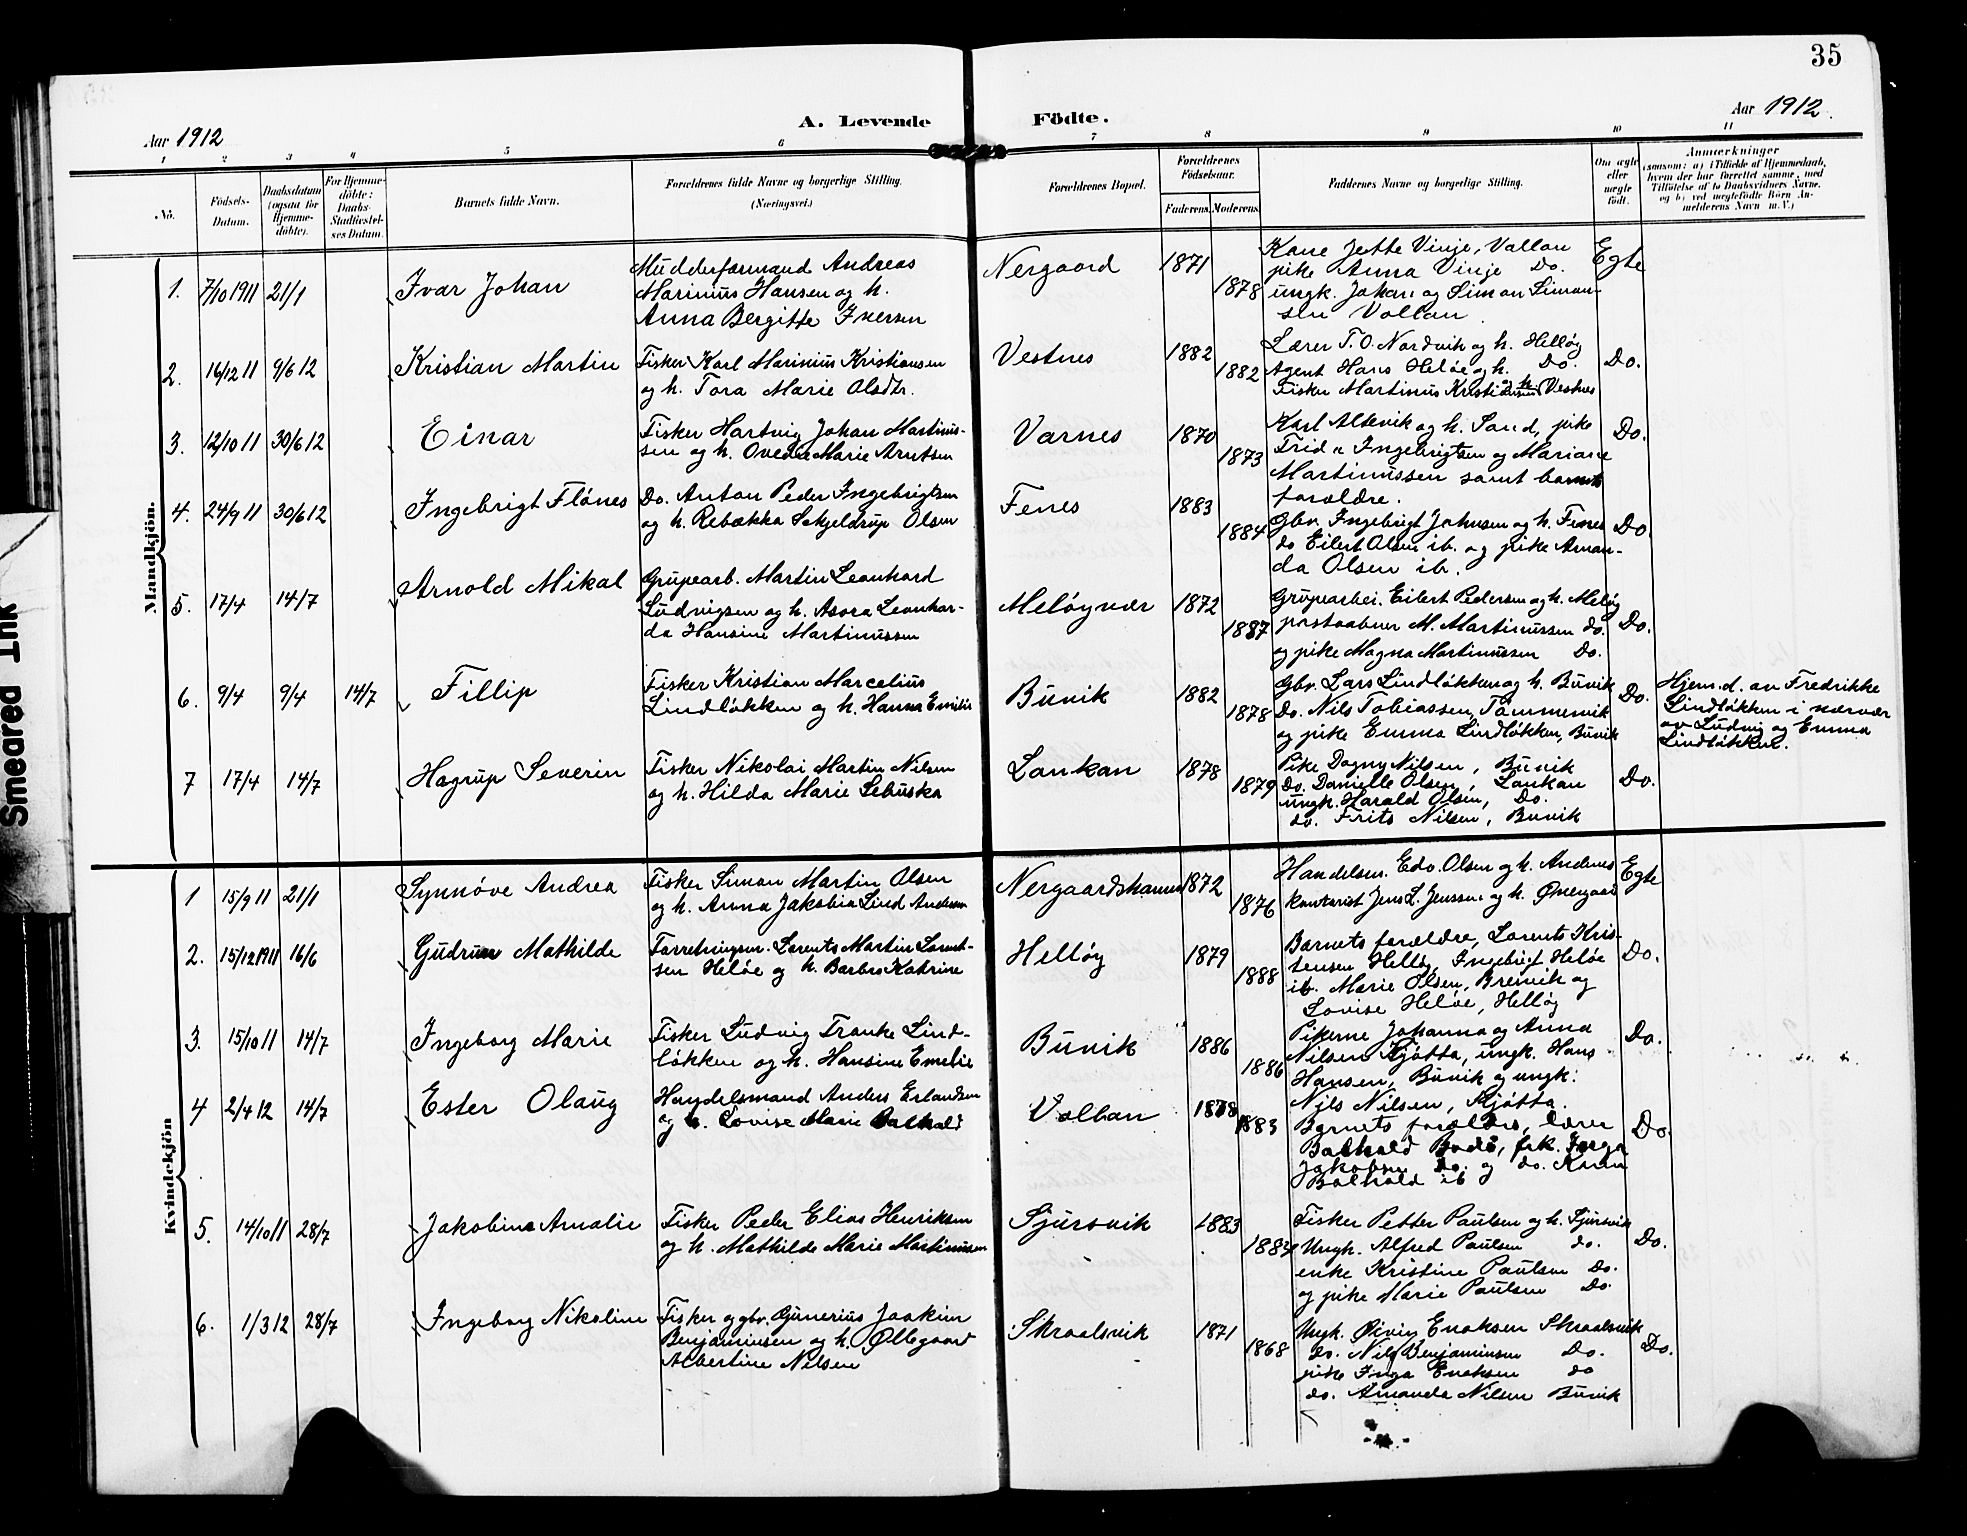 35
Aar 1912
A. Levende
Födte.
Aar 1912.
1 2 3 4 5 6 7 8 9 10 11
No.
Födsels-
Datum.
Daabsdatum
(ogsaa for
Hjemme-
döbte).
For Hjemme-
döbte:
Daabs-
Stadfæstel-
ses Datum.
Barnets fulde Navn.
Forældrenes fulde Navne og borgerlige Stilling.
(Næringsvei.)
Forældrenes Bopæl.
Forældrenes
Födselsaar.
Faderens. Moderens.
Faddernes Navne og borgerlige Stilling.
Om ægte
eller
uægte
født.
Anmærkninger
(saasom: a) i Tilfælde af Hjemmedaab,
hvem der har forrettet samme, med
Tilföielse af to Daabsvidners Navne.
og b) ved uægtefödte Börn An-
melderens Navn m. V.)
Mandkjön.
1. 7/10 1911 21/1
Ivar Johan
Mudderformand Andreas
Marinius Hansen og h.
Anna Bergitte Iversen
Nergaard
1871
1878
Kone Jette Vinje, Vollan
pike Anna Vinje Do.
ungk. Johan og Simon Simon-
sen Vollan.
Egte
2. 16/12 11 9/6 12
Kristian Martin
Fisker Karl Marinius Kristiansen
og h. Tora Marie Olsdtr.
Vestnes
1882
1882
Lærer T. O. Nordvik og h. Helløy
Agent Hans Heløe og h. Do.
Fisker Martinus Kristiansen og h. Vestnes
Do.
3. 12/10 11 30/6 12
Einar
Fisker Hartvig Johan Martinus-
sen og h. Ovedie Marie Arntsen
Varnes
1870
1873
Karl Altevik og h. Sand, pike
Ingebrigtsen og Mariane
Martinussen samt barnets
forældre.
Do.
4. 24/9 11 30/6 12
Ingebrigt Flönes
Do. Anton Peder Ingebrigtsen
og h. Rebækka Schjeldrup Olsen
Fenes
1883
1884
Gbr. Ingebrigt Johnsen og h. Fenes
do Eilert Olsen ib. og pike Aman-
da Olsen ib.
Do.
5. 17/4 14/7
Arnold Mikal
Grupearb. Martin Leonhard
Ludvigsen og h. Asora Leonhar-
da Hansine Martinussen
Meløyvær
1872
1887
Grupearbei. Eilert Pedersen og h. Meløy
postaabner M. Martinussen do.
og pike Magna Martinussen Do.
Do.
6. 9/4 9/4 14/7
Fillip
Fisker Kristian Marcelius
Lindløkken og h. Hanna Emilie
Bunik
1882
1878
Gbr. Lars Lindløkken og h. Bunik
Do. Nils Tobiassen, Tømmervik
og pike Emma Lindløkken, Bunik
Do.
Hjem.d. av Fredrikke
Lindløkken i nærvær
av Ludvig og Emma
Lindløkken.
7 17/4 14/7
Hagrup Severin
Fisker Nikolai Martin Nilsen
og h. Hilda Marie Sebuska
Lankan
1878
1879
Pike Dagny Nilsen, Bunik
Do. Danielle Olsen, Lankan
ungk. Harald Olsen, Do.
do. Frits Nilsen, Bunik
Do.
Kvindekjön
1 15/9 11 21/1
Synnöve Andrea
Fisker Simon Martin Olsen
og h. Anna Jakobia Lind Andersen
Nergaardshamn
1872
1876
Handelsm. Edv. Olsen og h. Andenes
Kontorist Jens L. Jenssen og h. Øvergaard
Egte
2. 15/12 1911 16/6
Gudrun Mathilde
Forretningsm. Lorents Martin Lorent-
sen Heløe og h. Barbro Katrine
Helløy
1879
1888
Barnets forældre, Lorents Kris-
tensen Helløy, Ingebrigt Heløe
ib. Marie Olsen, Breivik og
Lovise Heløe, Helløy
Do.
3. 15/10 11 14/7
Ingeborg Marie
Fisker Ludvig Tranke Lind-
løkken og h. Hansine Emelie
Bunik
1886
1886
Pikerne Johanna og Anna
Nilsen Kjøtta, ungk. Hans
Hansen, Bunik og ungk.
Nils Nilsen, Kjøtta.
Do.
4 2/4 12 14/7
Ester Olaug
Handelsmand Anders Erlandsen
og h. Lovise Marie Bolhald
Vollan
1878
1883
Barnets forældre, lærer
Bolhald Bodö, frk. Inga
Jakobsen do. og do. Karen
Bolhald ib
Do.
5. 14/10 11 28/7
Jakobine Amalie
Fisker Peder Elias Henriksen
og h. Mathilde Marie Martinussen
Sjursvik
1883
1883
Fisker Petter Paulsen og h. Sjursvik
Ungk. Alfred Paulsen do.
enke Kristine Paulsen Do.
og pike Marie Paulsen Do
Do.
6. 1/3 12 28/7
Ingeborg Nikoline
Fisker og gbr. Gunerius Joakim
Benjaminsen og h. Ollegaard
Albertine Nilsen
Skroalsvik
1871
1868
Ungk. Øivin Enoksen Skroalsvik
do. Nils Benjaminsen Do.
pike Inga Enoksen do
do. Amanda Nilsen Bunik
Do.
Smeared Ink